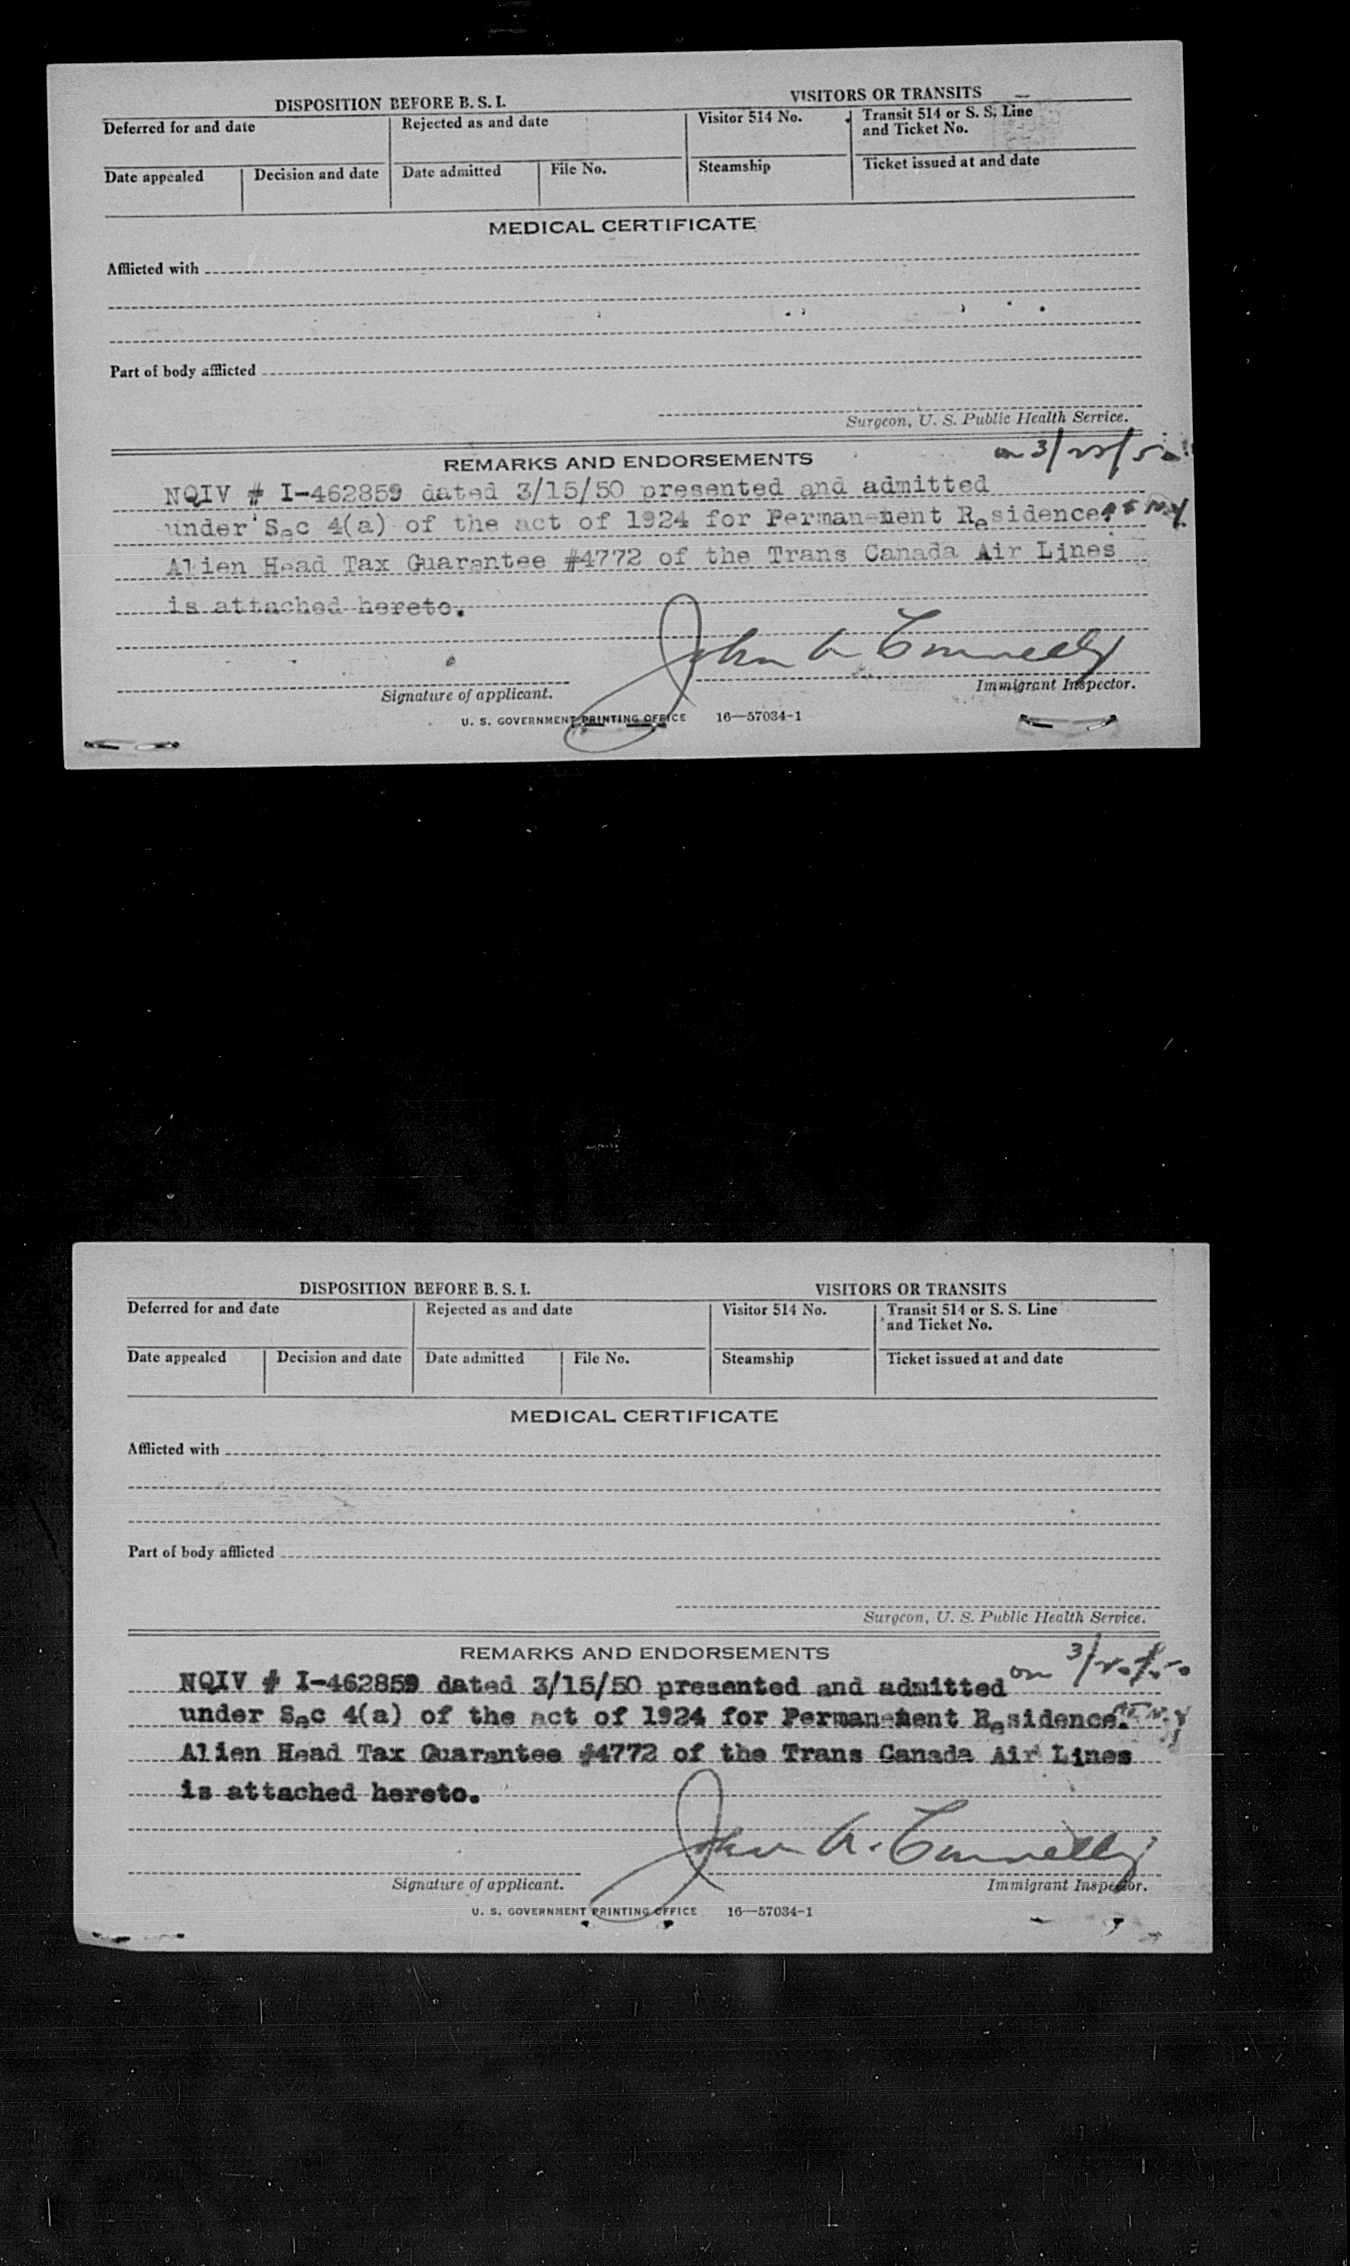 DISPOSITION BEFORE B. S. I.
VISITORS OR TRANSITS
Deferred for and date
Rejected as and date
Visitor 514 No.
Transit 514 or S. S. Line
and Ticket No.
Date appealed
Decision and date
Date admitted
File No.
Steamship
Ticket issued at and date
MEDICAL CERTIFICATE
Afflicted with
Part of body afflicted
Surgeon, U. S. Public Health Service.
REMARKS AND ENDORSEMENTS
on 3/
NQIV # I-462859 dated 3/15/50 presented and admitted
under Sec 4(a) of the act of 1924 for Perman-nent Residence.
Alien Head Tax Guarantee #4772 of the Trans Canada Air Lines
is attached hereto.
John A Connelly
Signature of applicant.
Immigrant Inspector.
U. S. GOVERNMENT PRINTING OFFICE 16—57034-1
DISPOSITION BEFORE B. S. I.
VISITORS OR TRANSITS
Deferred for and date
Rejected as and date
Visitor 514 No.
Transit 514 or S. S. Line
and Ticket No.
Date appealed
Decision and date
Date admitted
File No.
Steamship
Ticket issued at and date
MEDICAL CERTIFICATE
Afflicted with
Part of body afflicted
Surgeon, U. S. Public Health Service.
REMARKS AND ENDORSEMENTS
NQIV # I-462859 dated 3/15/50 presented and admitted on 3/20/50
under Sec 4(a) of the act of 1924 for Perman-nent Residence.
Alien Head Tax Guarantee #4772 of the Trans Canada Air Lines
is attached hereto.
John A. Connelly
Signature of applicant.
Immigrant Inspector.
U. S. GOVERNMENT PRINTING OFFICE 16—57034-1